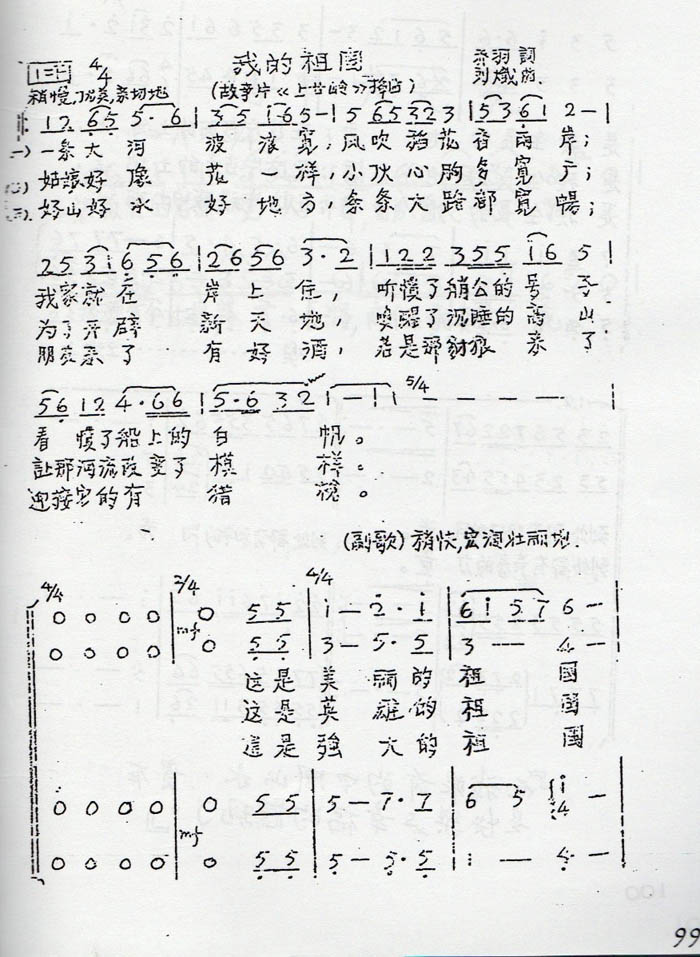 1=F 4/4 我的祖國 乔羽詞
稍慢,优美,亲切地 (故事片《上甘岭》插曲) 刘熾曲
1 2 6 5 5 · 6 | 3 5 i 6 5 - | 5 6 5 3 2 3 | 5 3 6 1 2 - |
(一) 一条大 河 波 浪 寬; 风吹 稻 花 香 兩 岸;
(二) 姑娘好 像 花 一 样, 小伙 心 胸 多 寬 广;
(三) 好山好 水 好 地 方, 条条 大 路 都 寬 暢;
2 5 3 i 6 5 6 | 2 6 5 6 3 · 2 | 1 2 2 3 5 5 i 6 5 |
我家就 在 岸 上 住, 听慣了 艄公的 号 子.
为了开 辟 新 天 地, 喚醒了 沉睡的 高 山
朋友来 了 有 好 酒, 若是那 豺狼 来 了
5 6 1 2 4 · 6 6 | 5 · 6 3 2 | 1 - | 1 - | 5/4 - - - - |
看 慣了船上的 白 帆。
让那河流改变了 模 样。
迎接它的有 猎 槍。
(副歌) 稍快,宏湧壮丽地.
4/4 2/4 4/4
0 0 0 0 | 0 5 5 | i - 2 · i | 6 i 5 7 6 - |
0 0 0 0 | mf 0 5 5 | 3 - 5 · 5 | 3 - 4 - |
这是 美 丽 的 祖 國
这是 英 雄 的 祖 國
這是 強 大 的 祖 國
0 0 0 0 | 0 5 5 | 5 - 7 · 7 | 6 5 i 4 - |
0 0 0 0 | mf 0 5 5 | 5 - 5 · 5 | - 4 - |
99